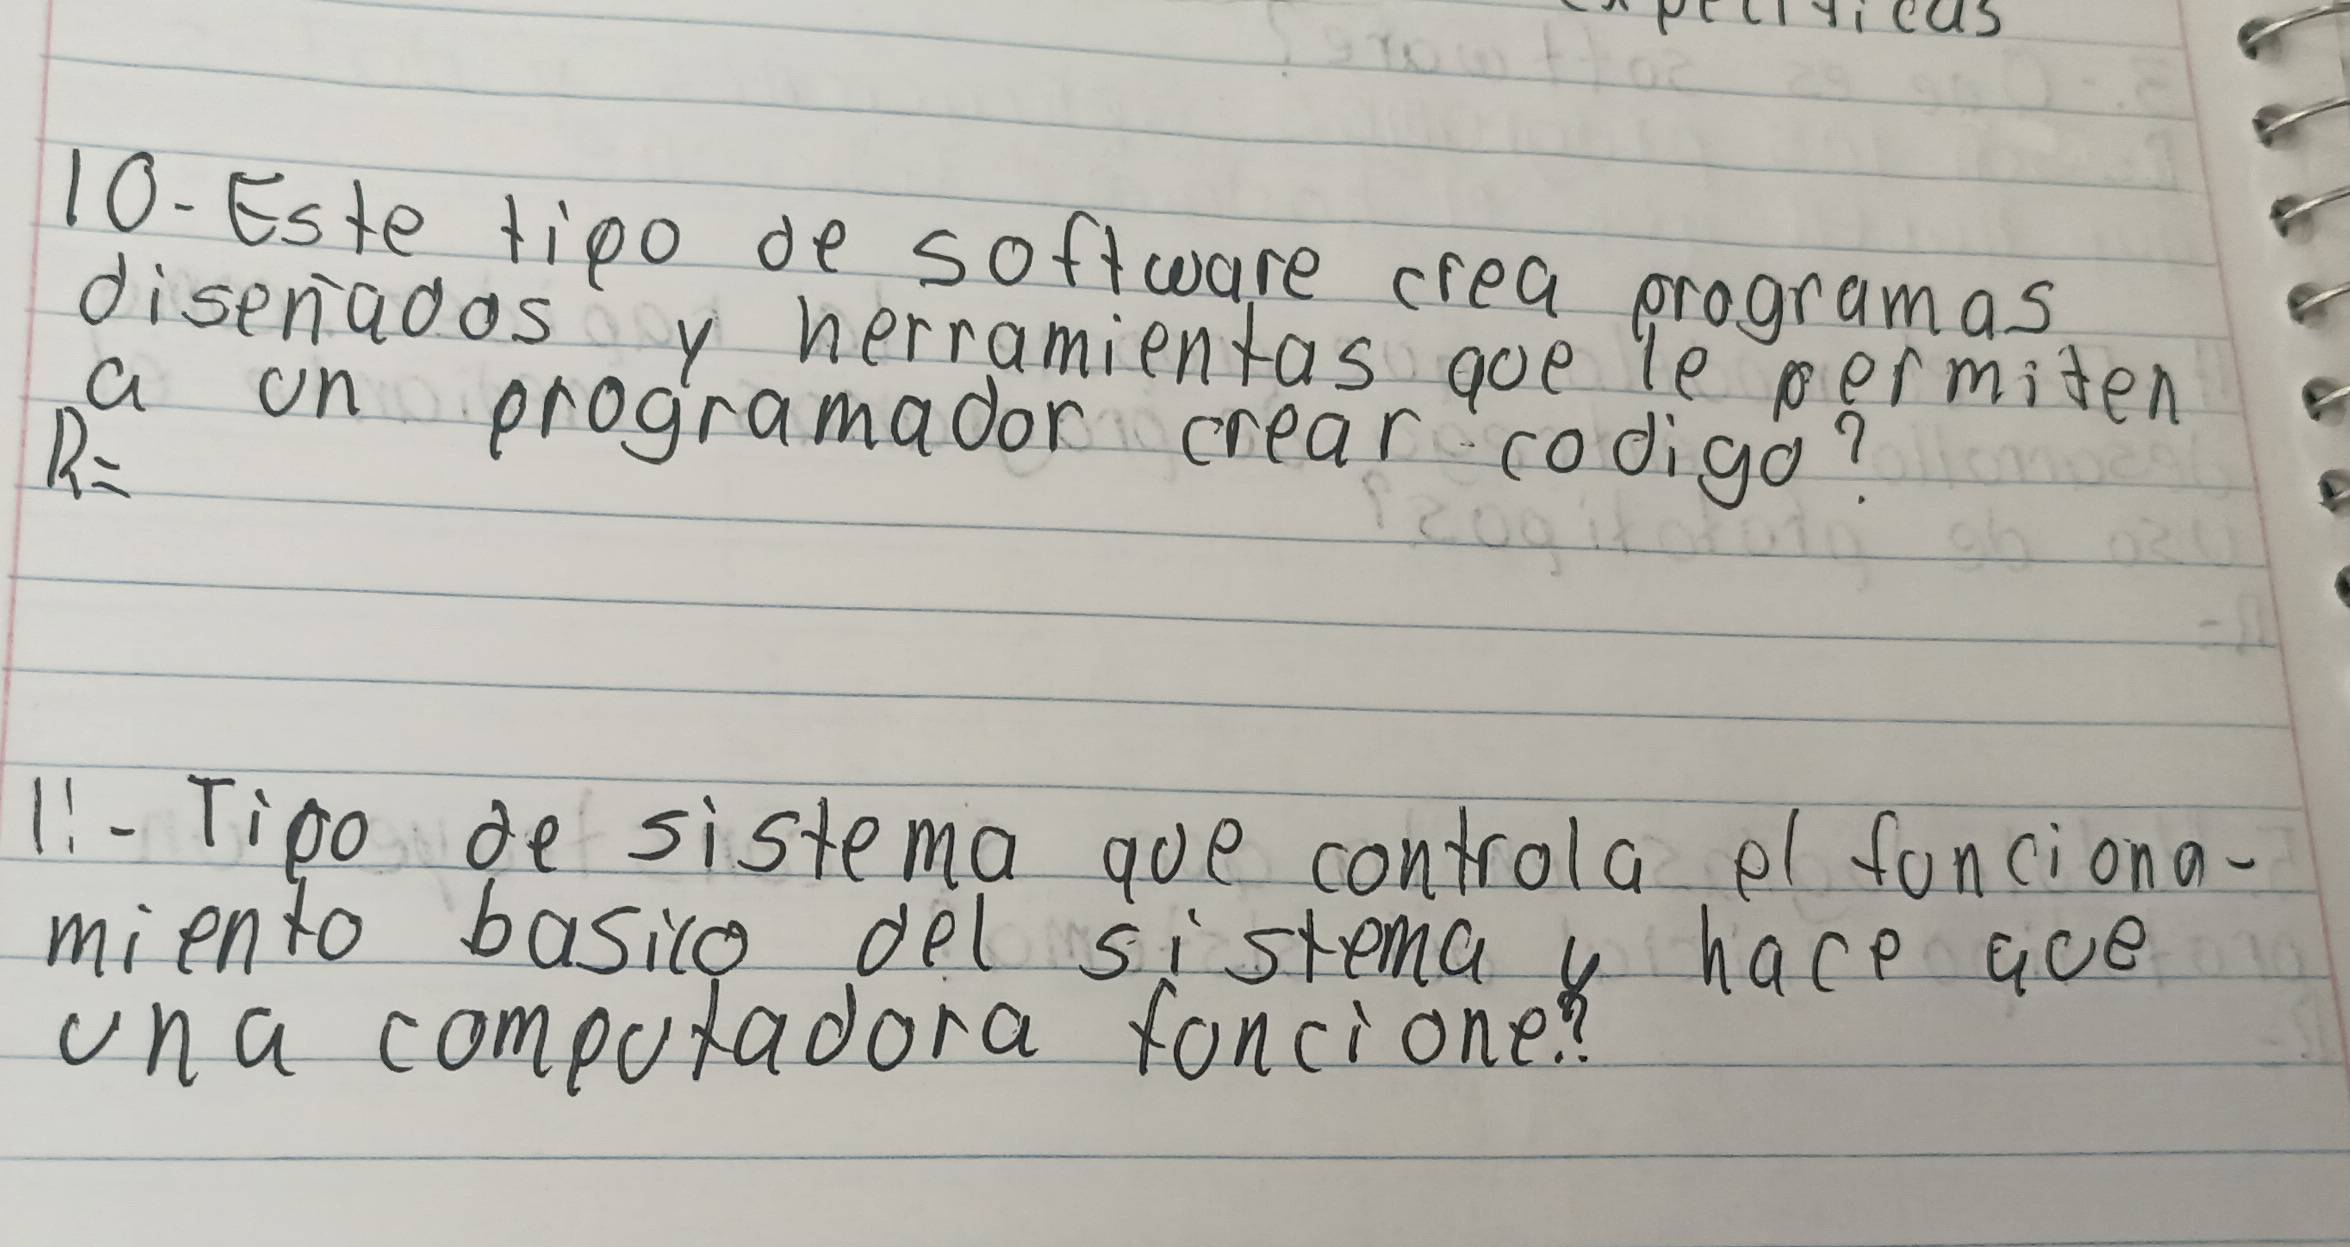 10-Este tipo de software crea programas
diseñados y herramientas que le permiten
a un programador crear codigo?
R=
11-Tipo de sistema que controla el funciona-
miento basico del sistema y hace que
una computadora funcione?